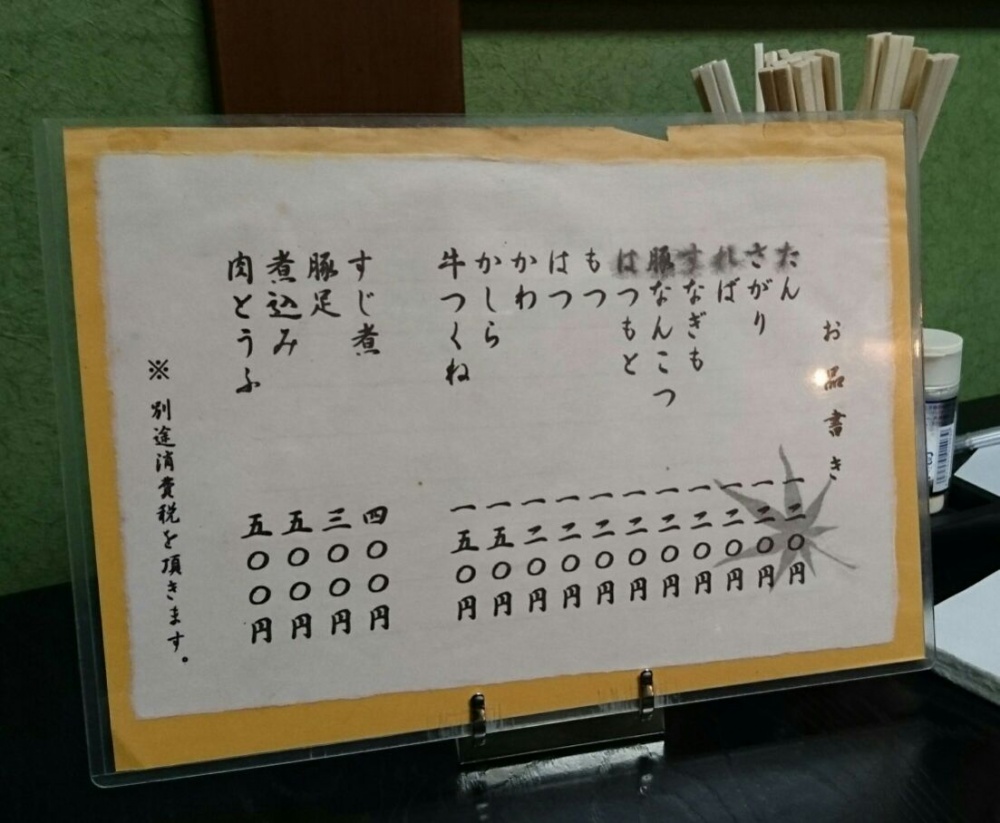 お品書き
たん 一二〇円
さがり 一二〇円
れば 一二〇円
すなぎも 一二〇円
豚なんこつ 一二〇円
はつもと 一二〇円
もつ 一二〇円
はつ 一二〇円
かわ 一二〇円
かしら 一五〇円
牛つくね 一五〇円
すじ煮 四〇〇円
豚足 三〇〇円
煮込み 五〇〇円
肉とうふ 五〇〇円
※ 別途消費税を頂きます。